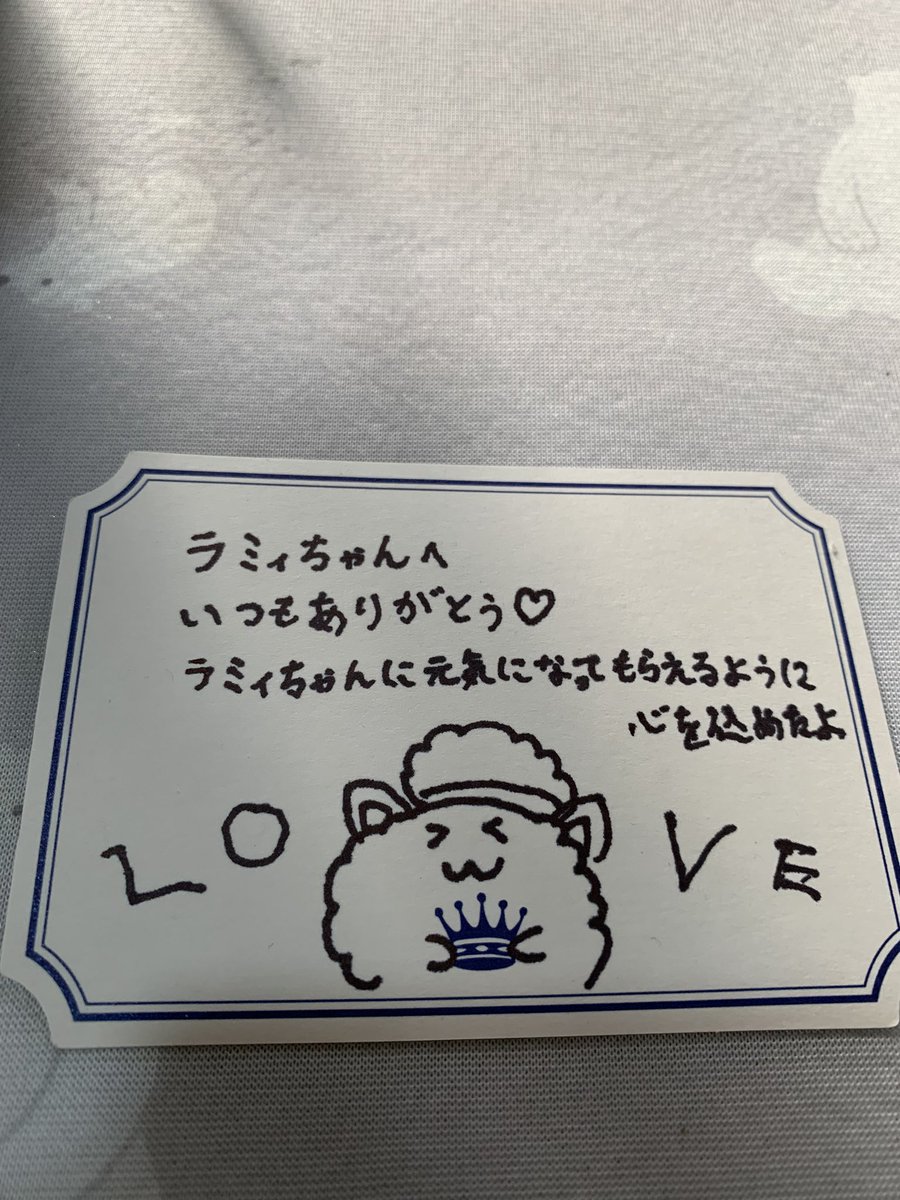 ラミィちゃんへ
いつもありがとう♡
ラミィちゃんに元気になってもらえるように
心を込めたよ
LOVE